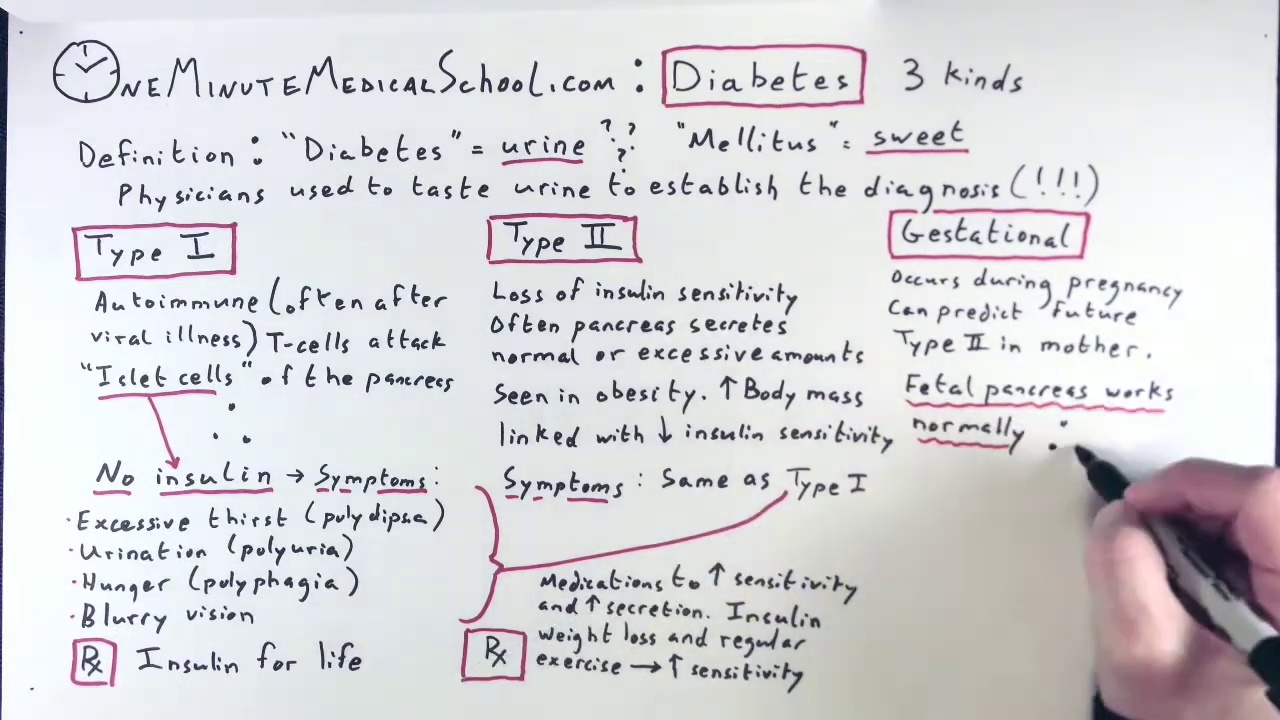 OneMinuteMedicalSchool.com : Diabetes 3 kinds
Definition : "Diabetes" = urine ??? "Mellitus" = sweet
Physicians used to taste urine to establish the diagnosis (!!!)
Type I
Autoimmune (often after
viral illness) T-cells attack
"Islet cells" of the pancreas
∴
No insulin → Symptoms:
· Excessive thirst (polydipsia)
· Urination (polyuria)
· Hunger (polyphagia)
· Blurry vision
Rx Insulin for life
Type II
Loss of insulin sensitivity
Often pancreas secretes
normal or excessive amounts
Seen in obesity. ↑ Body mass
linked with ↓ insulin sensitivity
Symptoms : Same as Type I
Rx
Medications to ↑ sensitivity
and ↑ secretion. Insulin
weight loss and regular
exercise → ↑ sensitivity
Gestational
Occurs during pregnancy
Can predict future
Type II in mother.
Fetal pancreas works
normally ∴